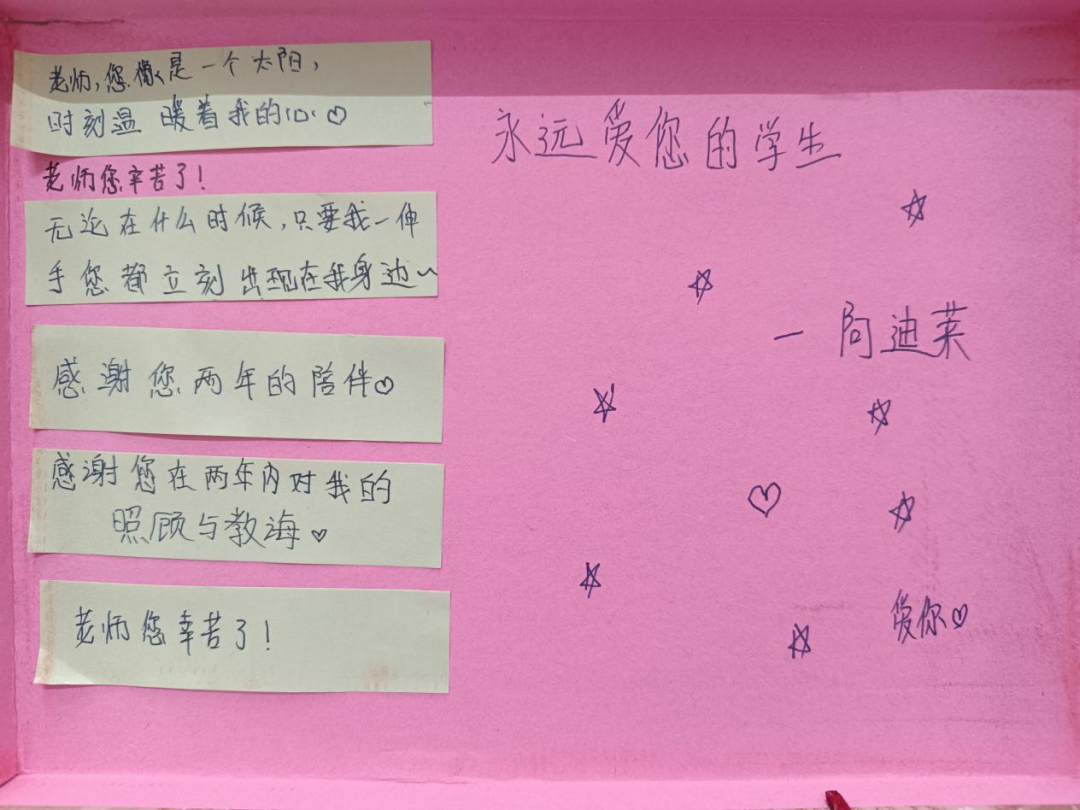 老师,您像是一个太阳,
时刻温暖着我的心♡
老师您辛苦了!
无论在什么时候,只要我一伸
手您都立刻出现在我身边~
感谢您两年的陪伴♡
感谢您在两年内对我的
照顾与教海♡
老师您幸苦了!
永远爱您的学生
一阿迪莱
爱你♡